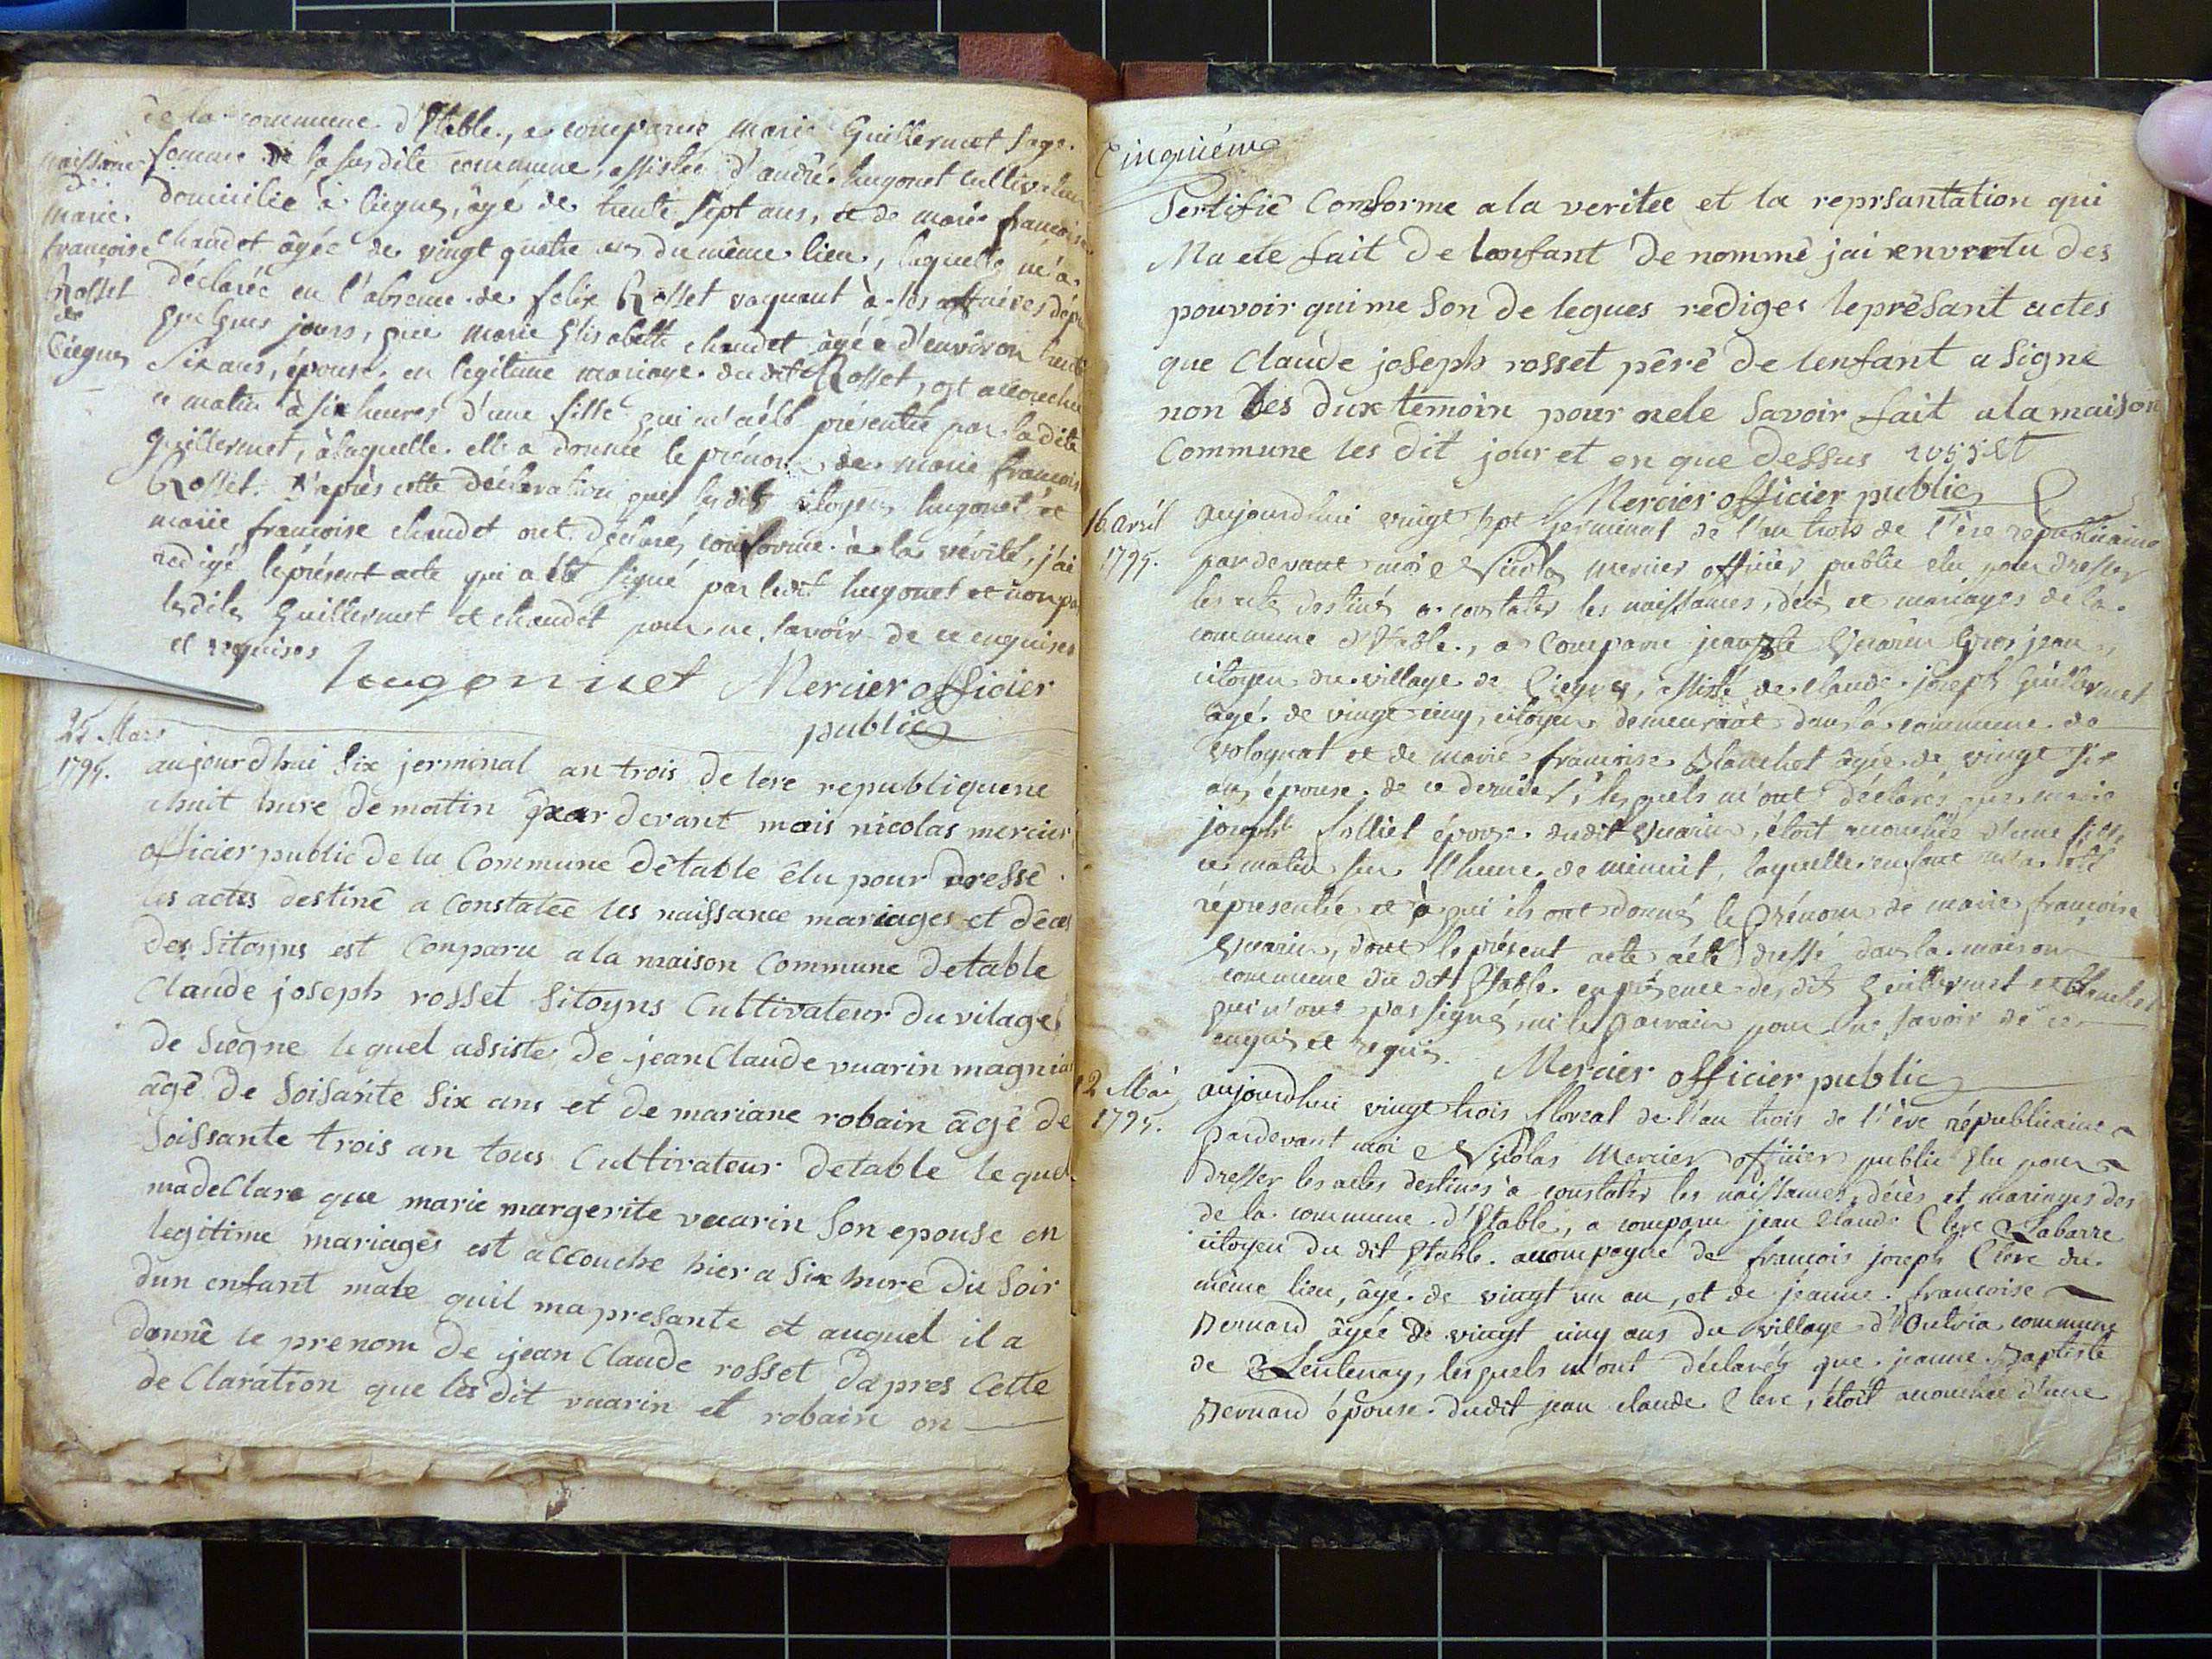 de la commune d'Etable, a comparue marie Guillermet sage.
femme de la susdite commune, assistée d'andré hugonet cultivateur
domicilié à Ciegnes, âgé de trente sept ans, et de marie francoise
chaudet âgée de vingt quatre ans du même lieu, laquelle m'a
déclarée en l'absence de felix Rosset vaquant à ses affaires dépuis
quelques jours, que marie Elisabeth chaudet âgée d'environ trente
six ans, épouse en legitime mariage dudit Rosset, est accouchée
ce matin à six heures d'une fille qui m'a été présentée par ladite
guillermet, à laquelle elle a donnée le prénom de marie francoise
Rosset. D'après cette déclaration que lesdits citoyens hugonet et
marie francoise chaudet ont déclaré conforme à la vérité, j'ai
redigé le présent acte qui a été signé par ledit hugonet et non par
lesdites Guillermet et chaudet pour ne savoir de ce enquises
et requises
naissance
de
marie
francoise
Rosset
de
Ciegnes
hugonnet Mercier officier
public
25 Mars
1795.
aujourdhui six jerminal an trois de lere republiquene
a huit hure de matin par devant mois nicolas mercier
officier public de la Commune détable élu pour dressé
les actes destiné a constateé les naissance mariages et déces
des sitoyns est conparu a la maison commune detable
Claude joseph rosset sitoyns Cultivateur du vilages
de siegne lequel assiste de jean Claude vuarin magnin
âgé de soisante six ans et de mariane robain âgé de
soissante trois an tous Cultivateur detable le quel
ma deClare que marie margerite vuarin son epouse en
legitime mariages est accouche hier a six hure du soir
dun enfant male quil ma presante et auquel il a
donné le prenom de jean Claude rosset dapres Cette
deClaration que les dit vuarin et robain on
Cinquiéme
Sertifié Comforme a la veritee et la reprsantation qui
Ma ete fait de lenfant de nommé jai en vertu des
pouvoir qui me son de legues rediges le présant actes
que Claude joseph rosset péré de lenfant a signe
non les dux temoin pour nele savoir fait a la maison
Commune les dit jour et en que dessus
Mercier officier public
16 avril
1795.
aujourdhui vingt sept Germinal de l'an trois de l'ère republicaine
pardevant moi Nicolas mercier officier public elu pour dresser
les actes destinés a constater les naissances, décès et mariages de la
commune d'Etable, a comparu jean Bte Vuarin Gros jean,
citoyen du village de Ciegnes, assisté de claude joseph Guillermet
âgé de vingt cinq, citoyen demeurant dans la commune de
volognat et de marie francoise Blanchet âgée de vingt six
ans, épouse de ce dernier, lesquels m'ont déclarés que marie
josephte folliet épouse dudit Vuarin, étoit accouchée d'une fille
ce matin sur l'heure de minuit, laquelle enfant m'a été
répresentée et à qui ils ont donnés le prénom de marie françoise
Vuarin, dont le présent acte a été dressé dans la maison
commune du dit Etable en présence desdits Guillermet et Blanchet
qui n'ont pas signés, ni le parrain pour ne savoir de ce
enquis et requis.
Mercier officier public
12 Mai
1795.
aujourdhui vingt trois floreal de l'an trois de l'ère républicaine
pardevant moi Nicolas Mercier officier public Elu pour
dresser les actes destinés à constater les naissances, décès et mariages des
de la commune d'Etable, a comparu jean claude Clerc Labarre
citoyen du dit Etable accompagné de francois joseph Clerc du
même lieu, âgé de vingt un an, et de jeanne francoise
Bernard âgée de vingt cinq ans du village d'Outria commune
de Leulenay, lesquels m'ont déclarés que jeanne Baptiste
Bernard épouse dudit jean claude Clerc, étoit accouchée d'une